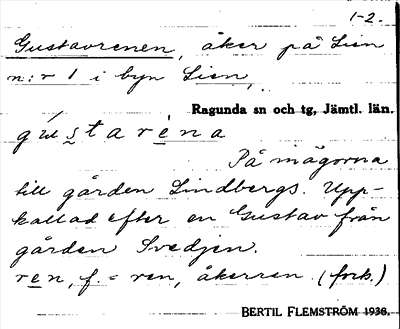 1-2.
Gustavrenen, åker på Lien
n:r 1 i byn Lien,
Ragunda sn och tg, Jämtl. län.
gu̍starèna
På mågorna
till gården Lindbergs. Upp-
kallad efter en Gustav från
gården Svedjen.
ren, f. = ren, åkerren. (fork.)
BERTIL FLEMSTRÖM 1936.